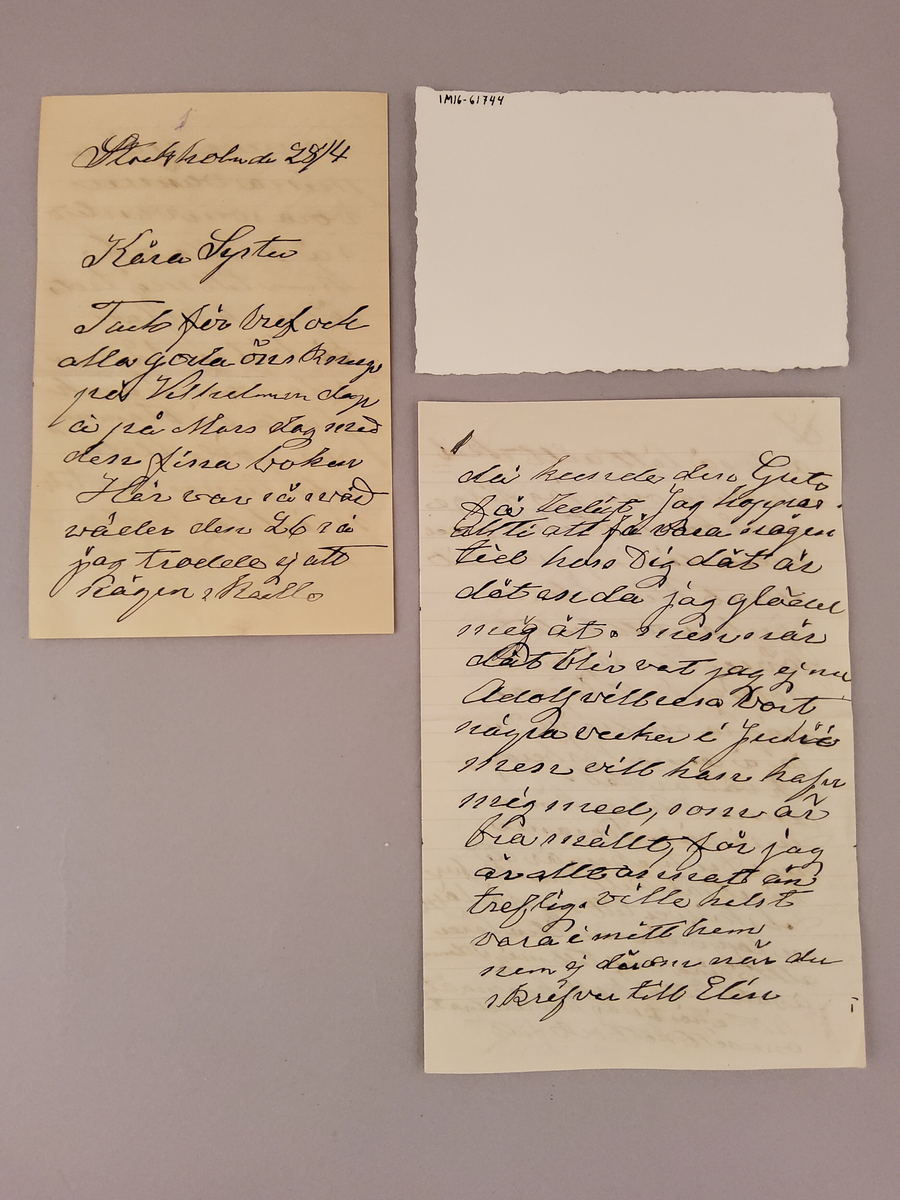 Stockholm de 28/4
Kära Syster
Tack för bref och
alla goda önskningar
på Vilhelmin dag
å på Mors dag med
den fina boken
Här var så svåd
wäder den 26 så
jag trodde ej att
någon skulle
1M16-61744
då kunde den Greta
få Jag hoppas
allti att få vara någon
tid hos Dig dät är
dät enda jag gläder
mig åt. men när
dät blir vet jag ej nu
Adolf vill resa bort
några veckor i Juni
men vill han hafva
mig med, som är
bra snällt, för jag
är allt annat än
treflig. ville helst
vara i mitt hem
nem ej därom när du
skrifver till Elin